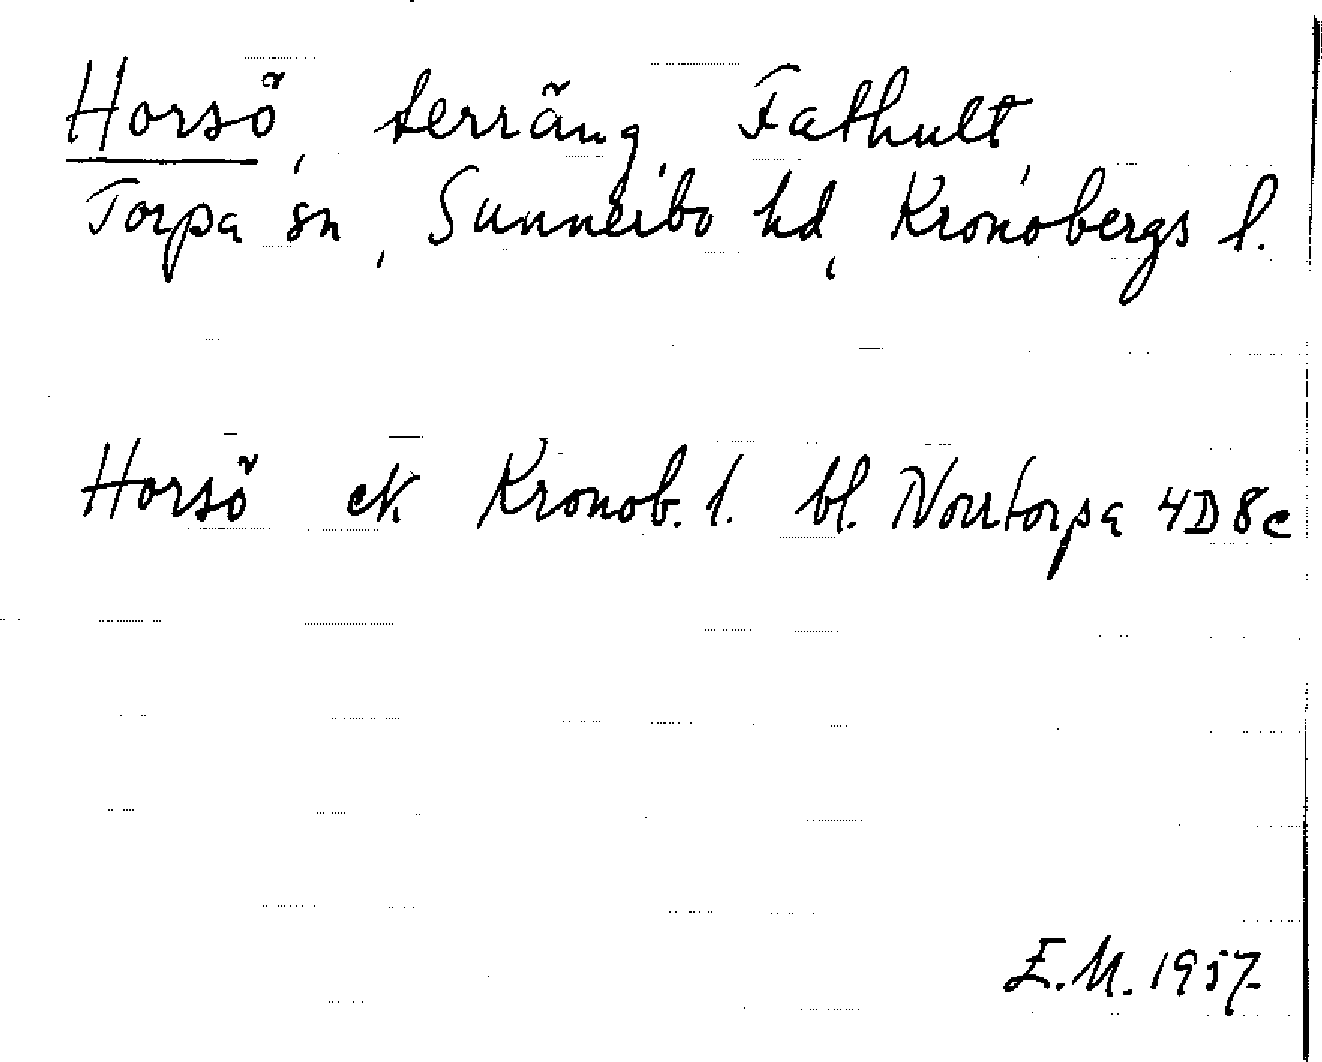 Horsö, terräng, Fathult,
Torpa sn, Sunnerbo hd, Kronobergs l.
Horsö ek Kronob. l. bl. Norrtorpa 4D8c
E.M. 1957